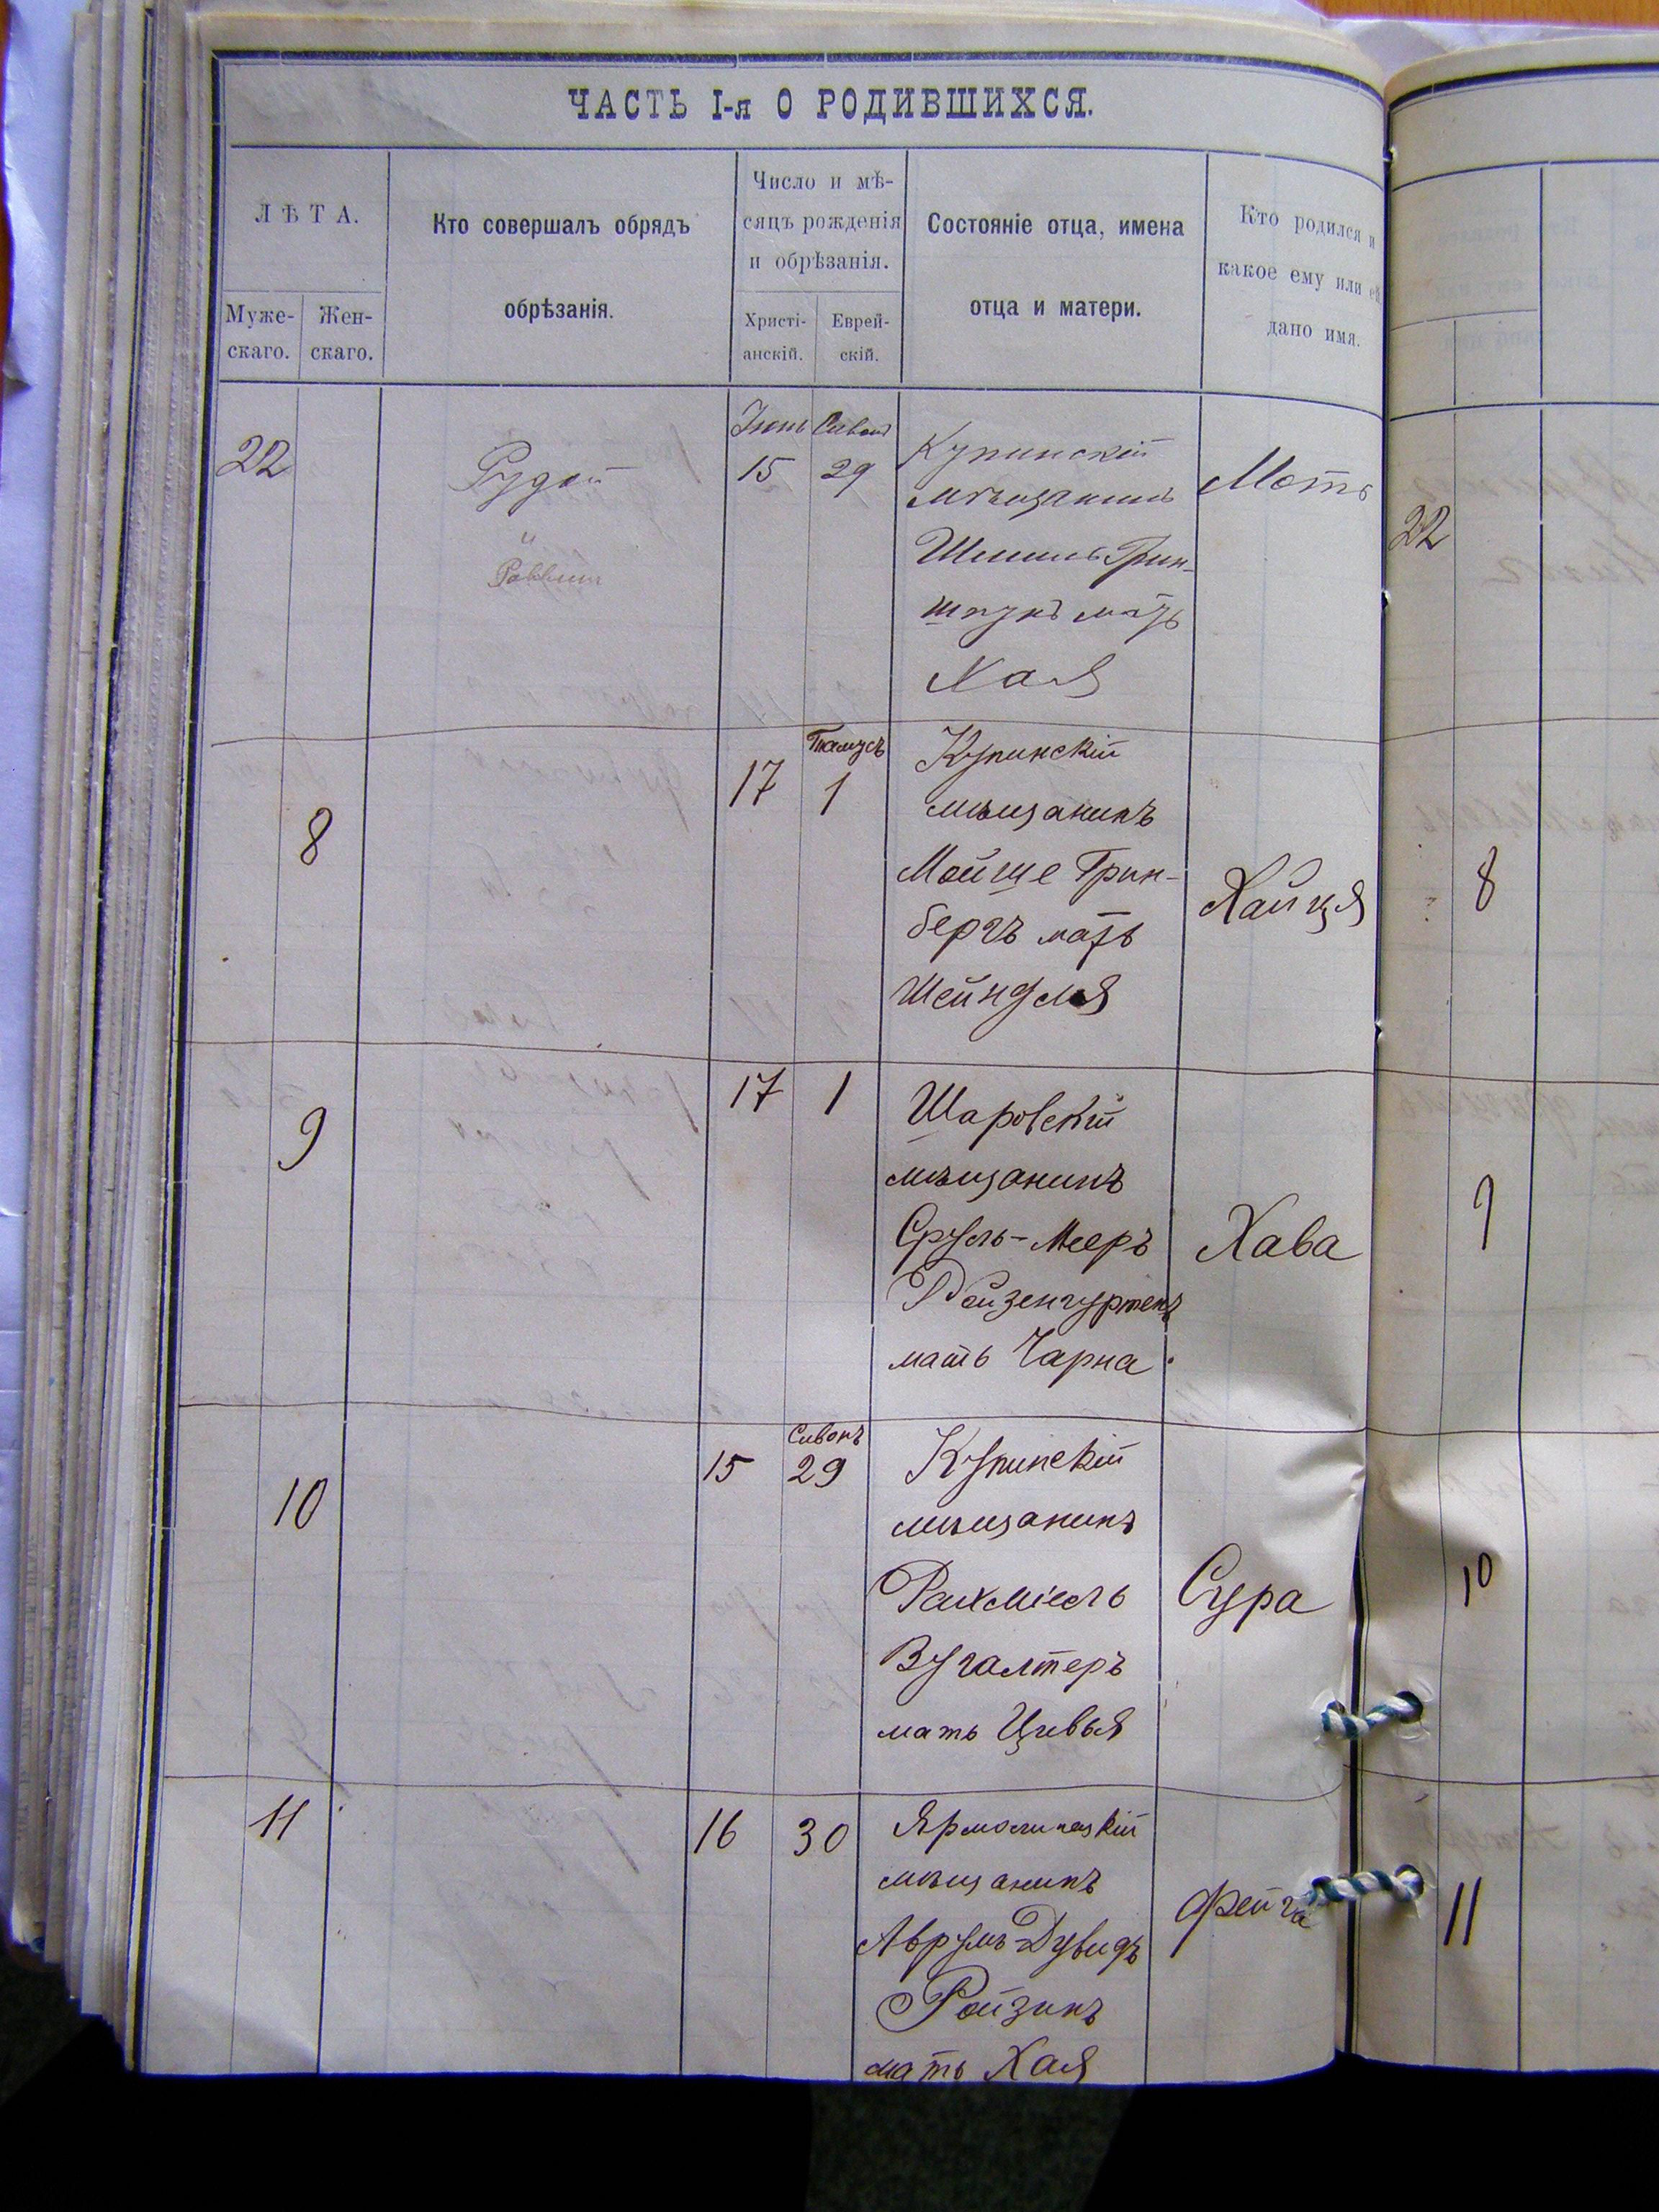 ЧАСТЬ I-я О РОДИВШИХСЯ.
ЛѢТА.
Муже-
скаго.
Жен-
скаго.
Кто совершалъ обрядъ
обрѣзанія.
Число и мѣ-
сяцъ рожденія
и обрѣзанія.
Христі-
анскій.
Еврей-
скій.
Состояніе отца, имена
отца и матери.
Кто родился и
какое ему или ей
дано имя.
22
Рудой
и
Раввинъ
Іюнь Сивонъ
15 29
Купинскій
мѣщанинъ
Шмиль Грин-
шпунъ мать
Хая
Моть
22
8
Тамузъ
17 1
Купинскій
мѣщанинъ
Мойше Грин-
бергъ мать
Шейндля
Хайця
8
9
17 1
Шаровскій
мѣщанинъ
Сруль-Мееръ
Райзенгуртенъ
мать Чарна.
Хава
9
10
Сивонъ
15 29
Купинскій
мѣщанинъ
Рахміель
Бугалтеръ
мать Цивья
Сура
10
11
16 30
Ярмолинецкій
мѣщанинъ
Аврумъ-Дувидъ
Ройзинъ
мать Хая
Фейга
11